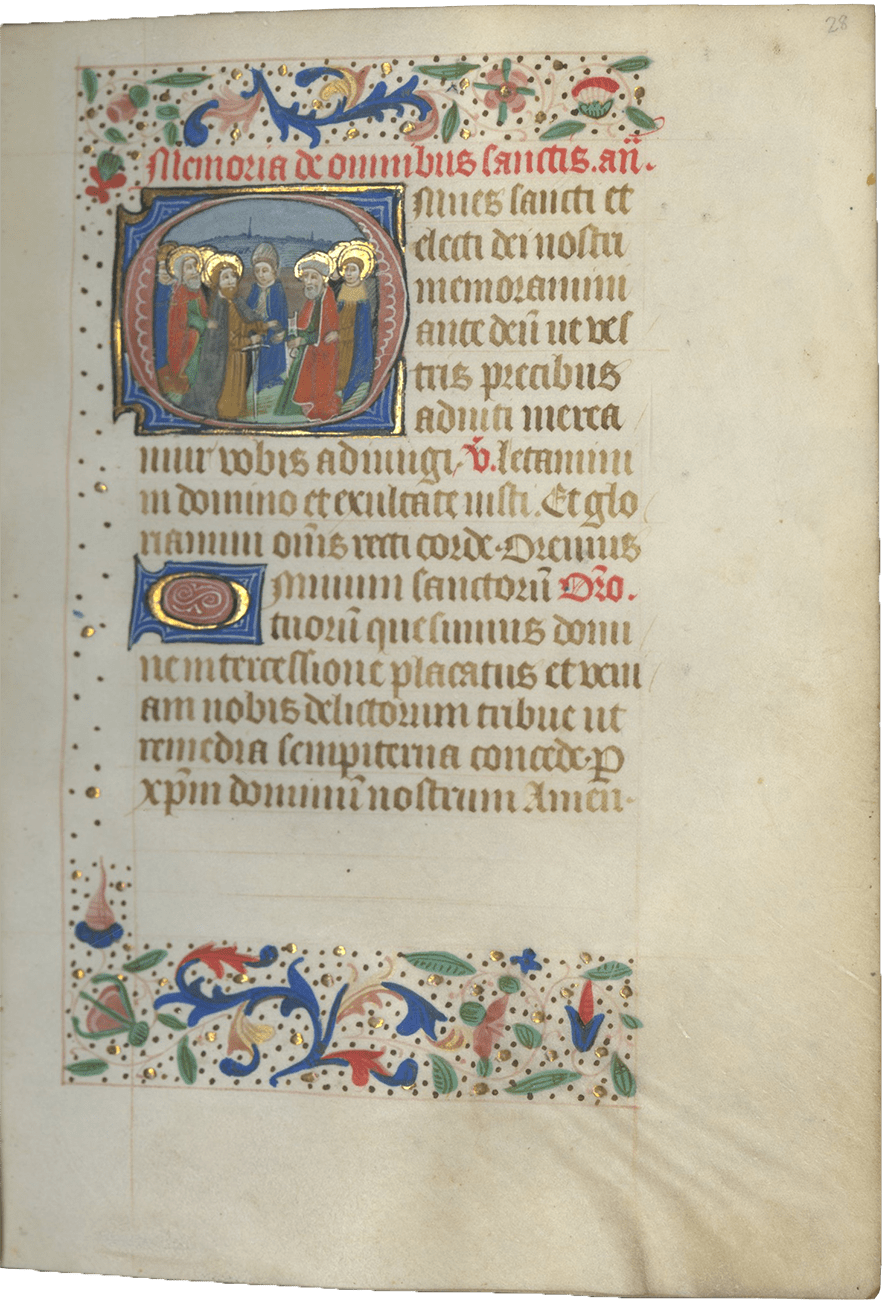 28
Memoria de omnibus sanctis. an̄.
Omnes sancti et
electi dei nostri
memoramini
ante deū ut ves
tris precibus
adiuti merea
mur vobis adiungi. v̄. letamini
in domino et exultate iusti. Et glo
riamini om̄s recti corde. Oremus
Omnium sanctorū Or̄o.
tuorū quesumus domi
ne intercessione placatus et veni
am nobis delictorum tribue ut
remedia sempiterna concede. P
xp̄m dominū nostrum Amen.